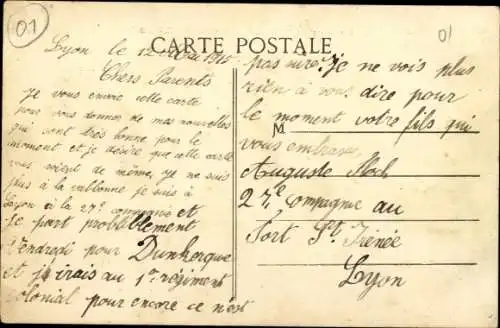 01
01
CARTE POSTALE
Lyon le 12 1915
Chers Parents
Je vous envoie cette carte
pour vous donner de mes nouvelles
qui sont très bonne pour le
moment et je désire que cette carte
vous soient de même, je ne suis
plus à la valbonne je suis à
Lyon à la 27e compagnie et
je part probablement
Vendredi pour Dunkerque
et je irais au 1er régiment
colonial pour encore ce n'est
pas sûre. Je ne vois plus
rien à vous dire pour
le moment votre fils qui
M
vous embrasse
Auguste
27e Compagnie au
Fort St. Irénée
Lyon